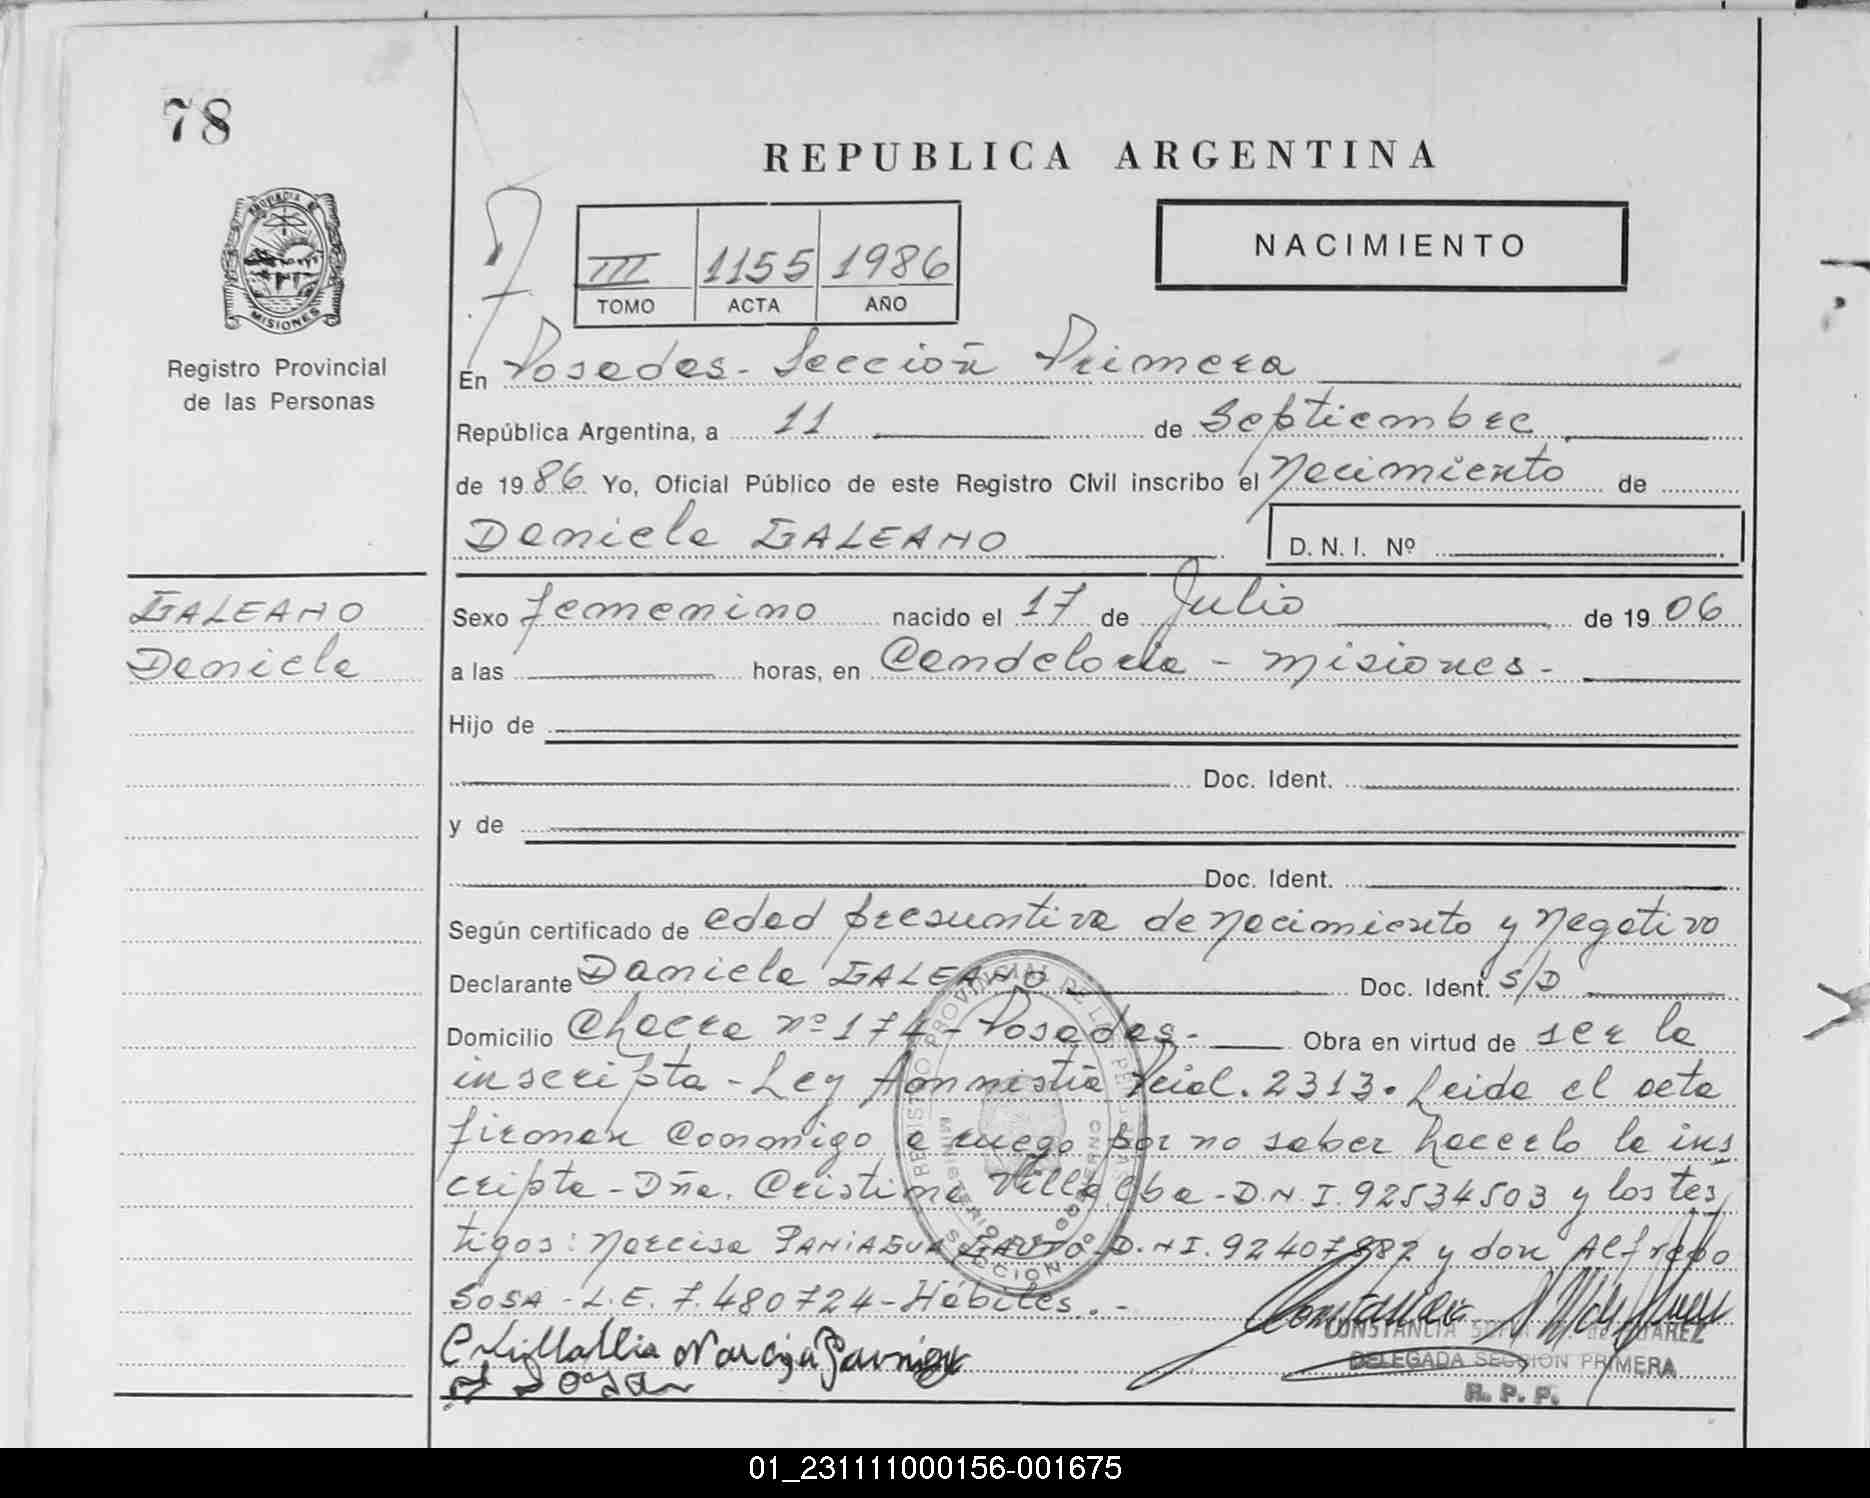 78
REPUBLICA ARGENTINA
NACIMIENTO
III 1155 1986
TOMO ACTA AÑO
PROVINCIA DE
MISIONES
Registro Provincial
de las Personas
En Posadas - Sección Primera
República Argentina, a 11 de Septiembre
de 1986 Yo, Oficial Público de este Registro Civil inscribo el Nacimiento de
Daniela GALEANO D. N. I. Nº
GALEANO
Daniela
Sexo femenino nacido el 17 de Julio de 1906
a las horas, en Candelaria - Misiones -
Hijo de
Doc. Ident.
y de
Doc. Ident.
Según certificado de edad presuntiva de Nacimiento y Negativo
Declarante Daniela GALEANO Doc. Ident. S/D
Domicilio Chacra nº 174 - Posadas - Obra en virtud de ser la
inscripta - Ley Amnistía Pcial. 2313. Leida el acta
firman Conmigo a ruego por no saber hacerlo la ins
cripta - Dña. Cristina Villalba - D.N.I. 92534503 y los tes
tigos: Narcisa PANIAGUA GAUTO - D.N.I. 92407882 y don Alfredo
SOSA - L.E. 7.480724 - Hábiles. -
C Villalba Narciza Paniagua
CONSTANCIA de SUAREZ
DELEGADA SECCION PRIMERA
R. P. P.
REGISTRO PROVINCIAL DE LAS PERSONAS
MINISTERIO DE GOBIERNO
SECCION
01_231111000156-001675